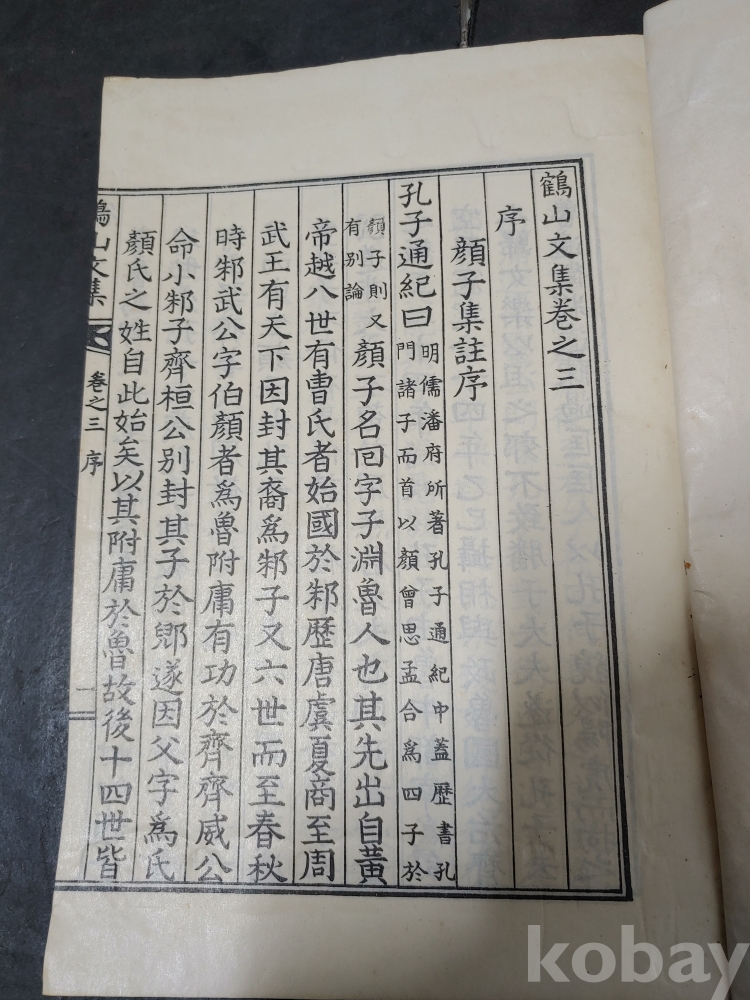 鶴山文集卷之三
序
顔子集註序
孔子通紀曰 明儒潘府所著孔子通紀中蓋歷書孔
門諸子而首以顔曾思孟合爲四子於
顔子則又
有別論
顔子名回字子淵魯人也其先出自黃
帝越八世有曺氏者始國於邾歷唐虞夏商至周
武王有天下因封其裔爲邾子又六世而至春秋
時邾武公字伯顔者爲魯附庸有功於齊齊威公
命小邾子齊桓公別封其子於郳遂因父字爲氏
顔氏之姓自此始矣以其附庸於魯故後十四世皆
鶴山文集
卷之三 序
一
kobay